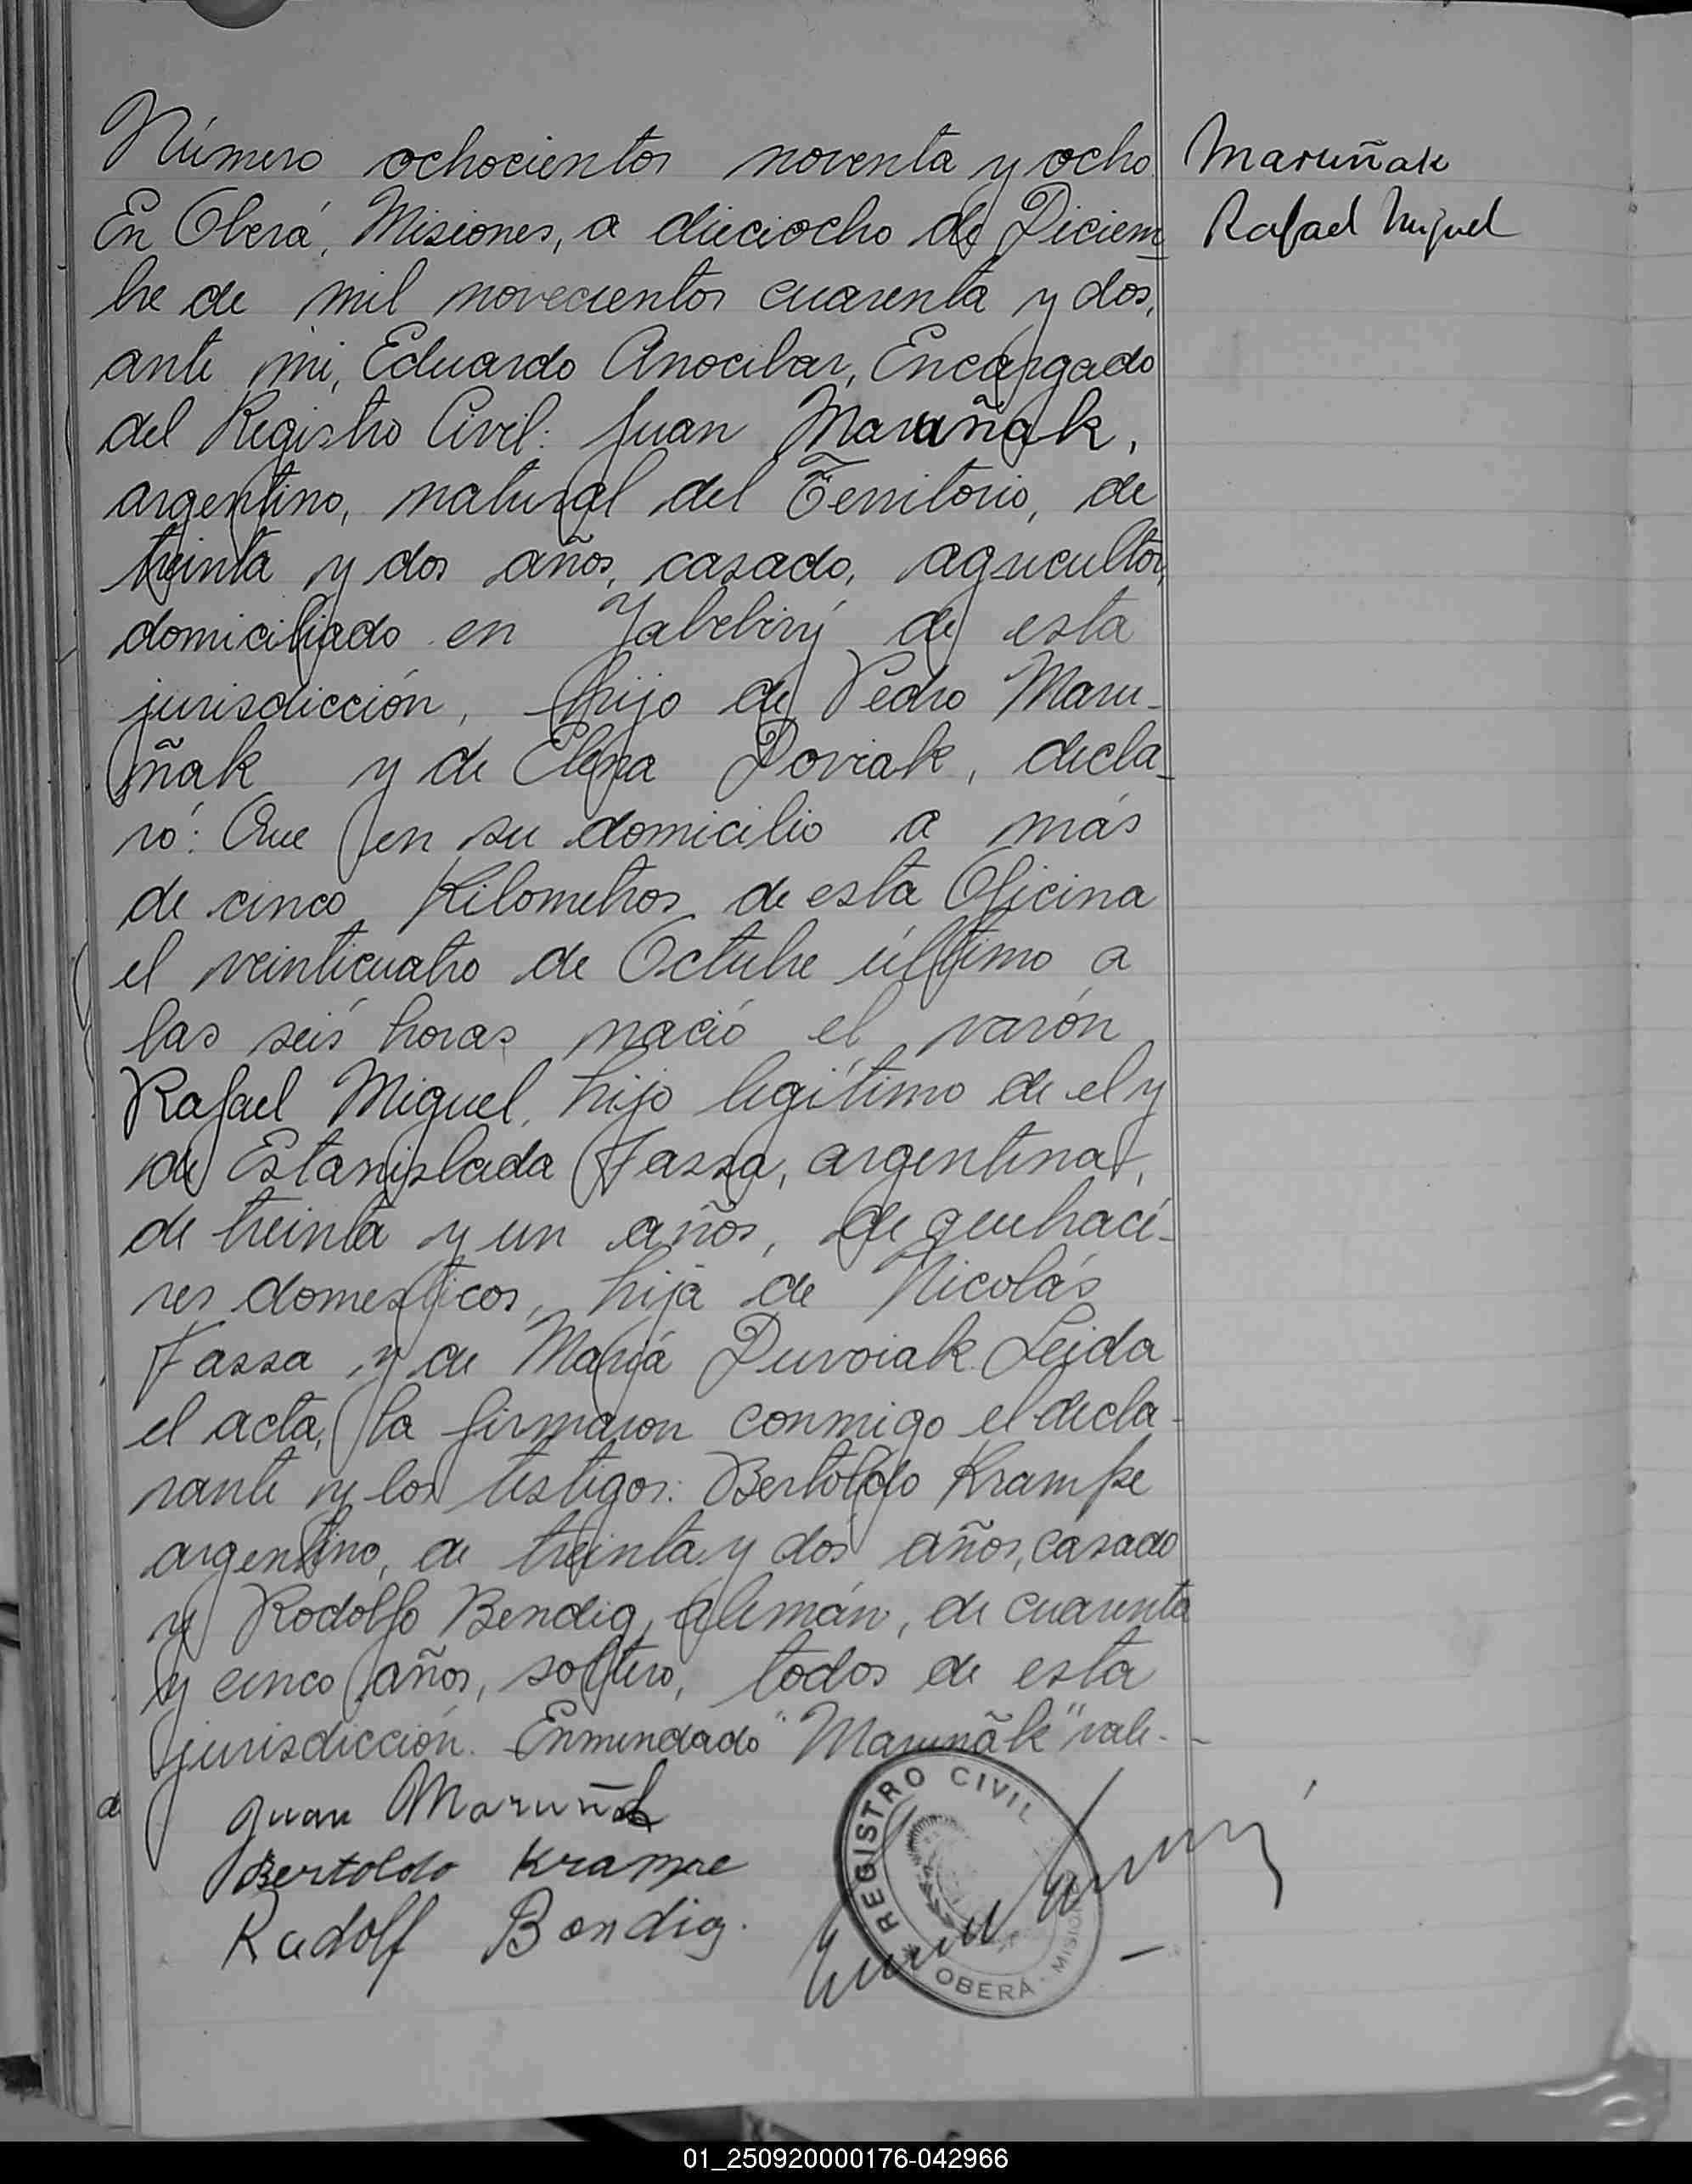 Número ochocientos noventa y ocho
Maruñak
En Oberá, Misiones, a dieciocho de Diciem_
Rafael Miguel
bre de mil novecientos cuarenta y dos,
ante mi, Eduardo Anocibar, Encargado
del Registro Civil: Juan Maruñak,
argentino, natural del Territorio, de
treinta y dos años, casado, agricultor,
domiciliado en Yabebirý de esta
jurisdicción, hijo de Pedro Maru_
ñak y de Elena Doviak, decla_
ró: Que en su domicilio a más
de cinco Kilometros de esta Oficina
el veinticuatro de Octubre último a
las seis horas nació el varón
Rafael Miguel, hijo legítimo de el y
de Estanislada Fassa, argentina,
de treinta y un años, de quehace-
res domesticos, hija de Nicolás
Fassa y de María Duvoiak Leida
el acta, la firmaron conmigo el decla-
rante y los testigos: Bertoldo Krampe
argentino, de treinta y dos años, casado
y Rodolfo Bendig, alemán, de cuarenta
y cinco años, soltero, todos de esta
jurisdicción. Enmendado "Maruñak" vale.-
Juan Maruñak
Bertoldo Krampe
Rudolf Bendig.
REGISTRO CIVIL
OBERÁ - MISIONES
01_250920000176-042966